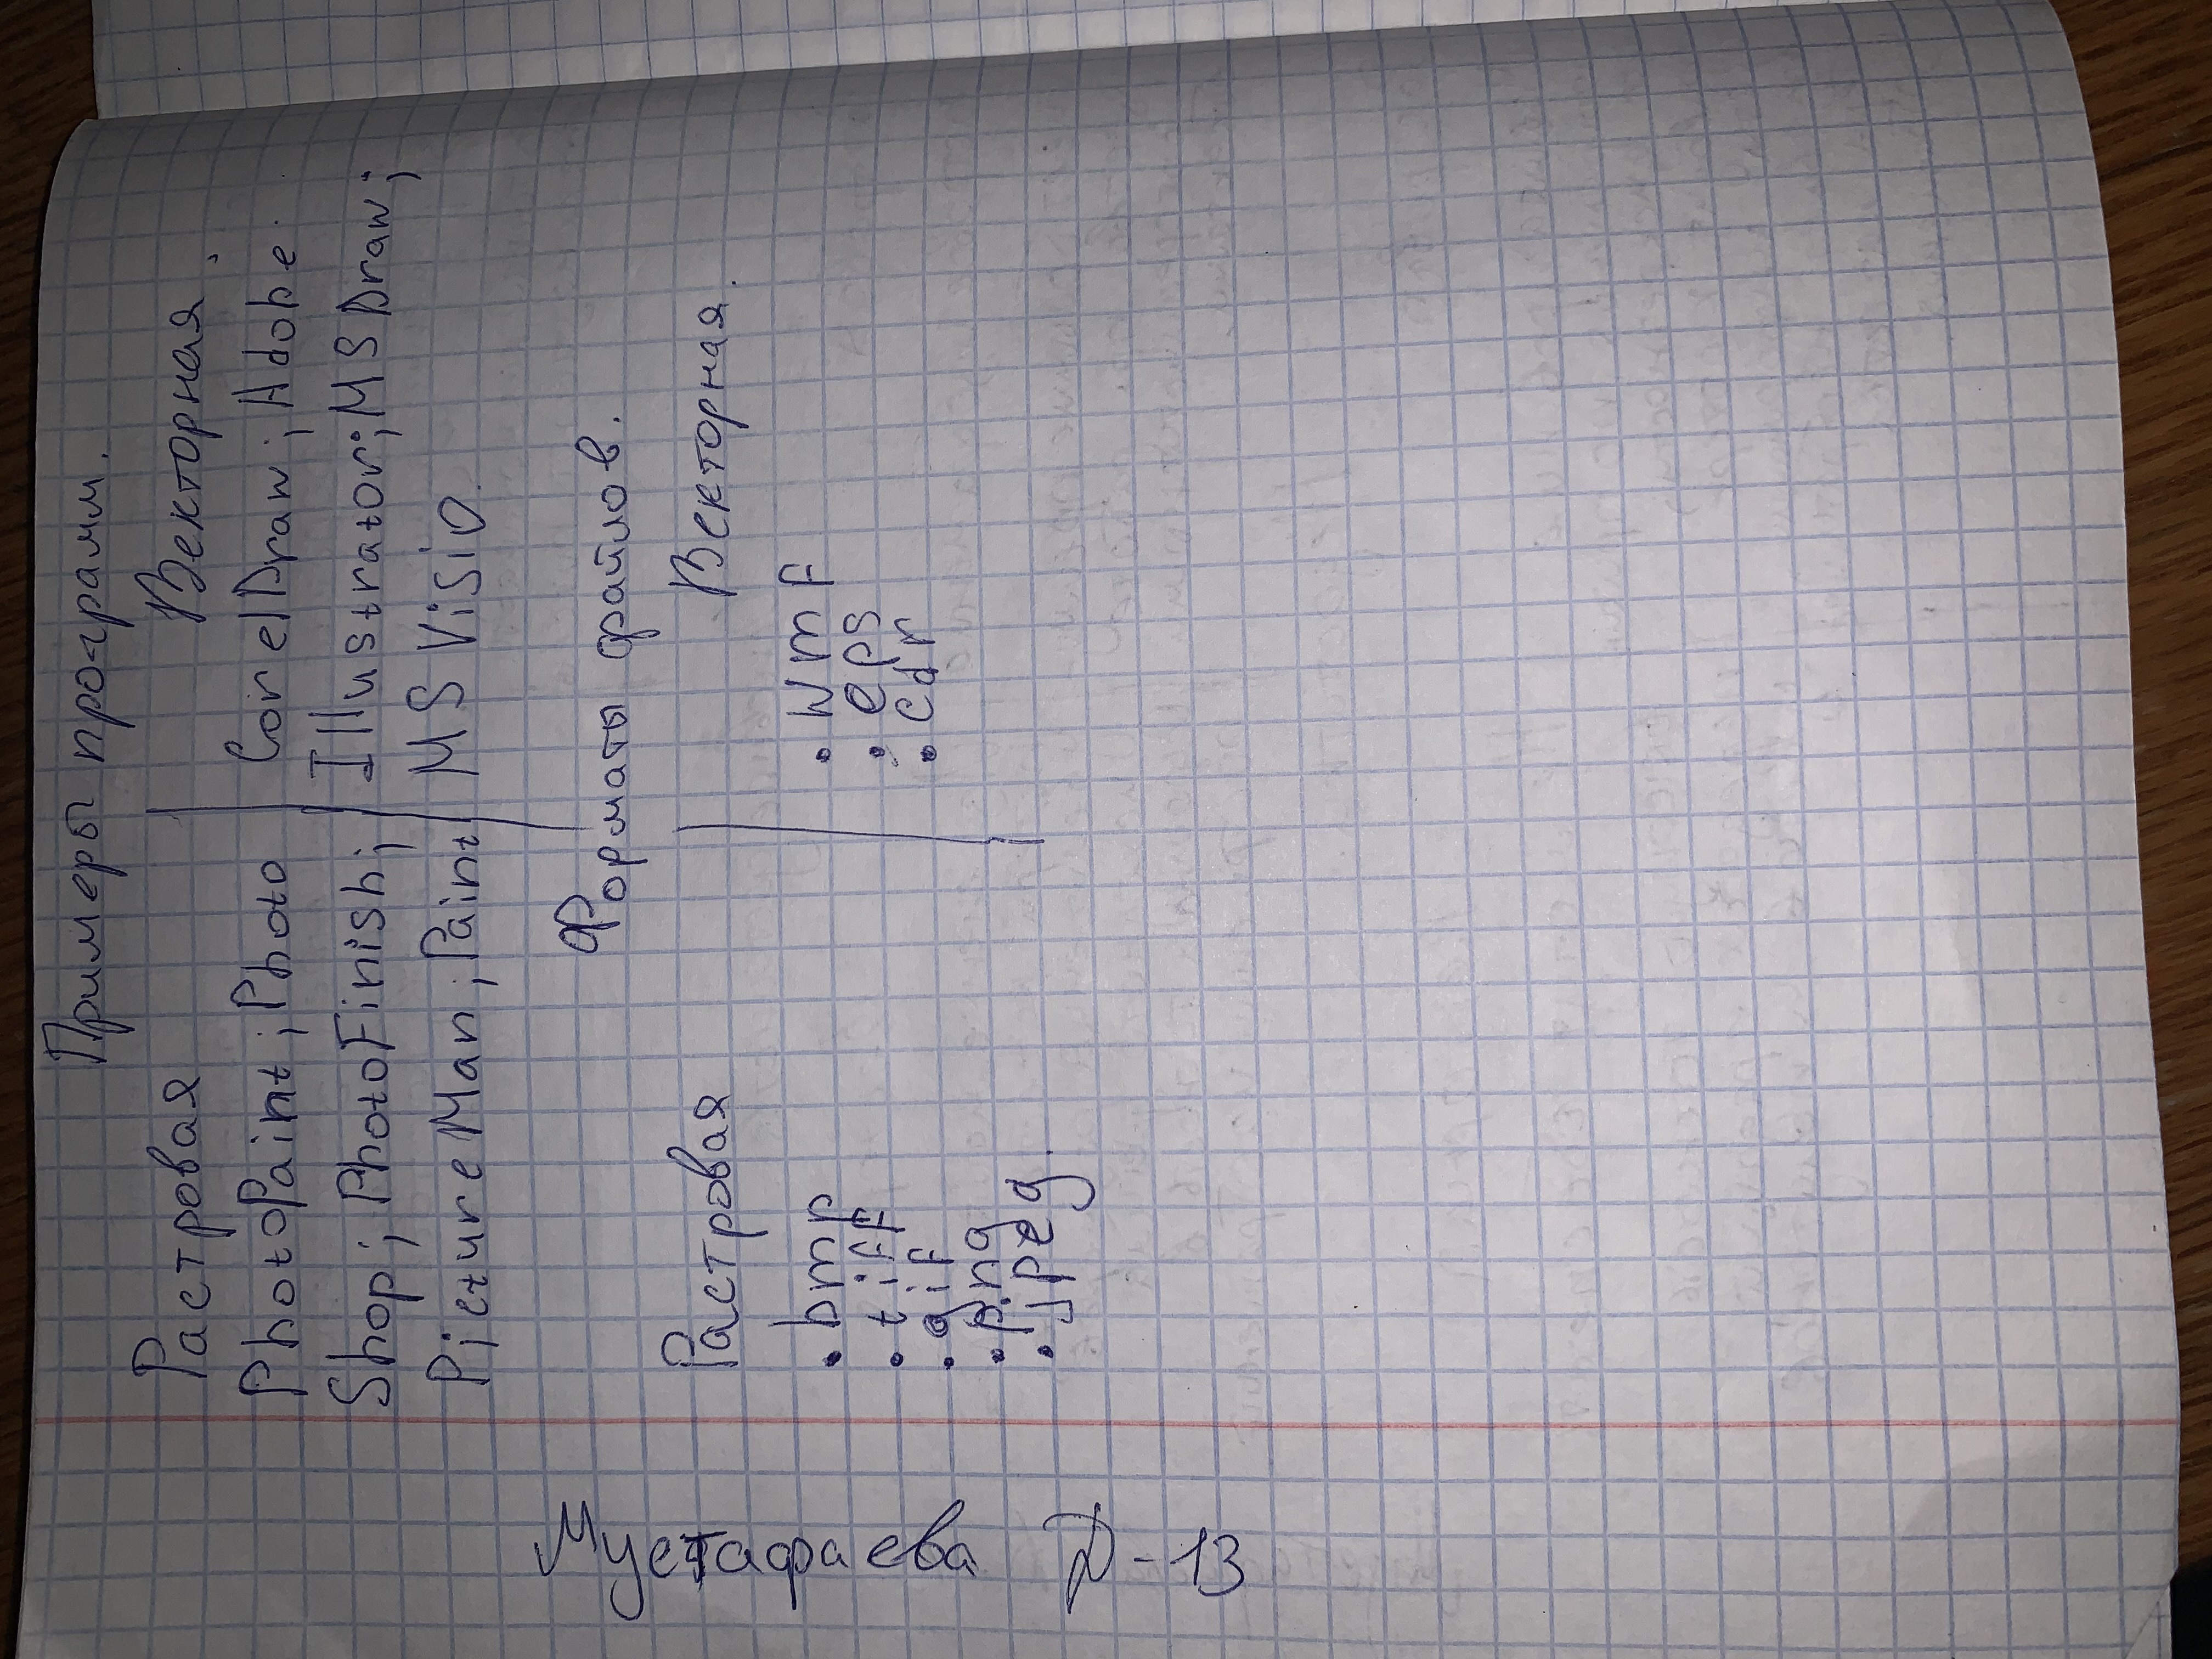 Примеры программ.
Растровая Векторная.
PhotoPaint; Photo CorelDraw; Adobe
Shop; PhotoFinish; Illustrator; MS Draw;
PictureMan; Paint MS Visio.
Форматы файлов.
Растровая Векторная.
• bmp • wmf
• tiff • eps
• gif • cdr
• png
• jpeg.
Мустафаева Д-13